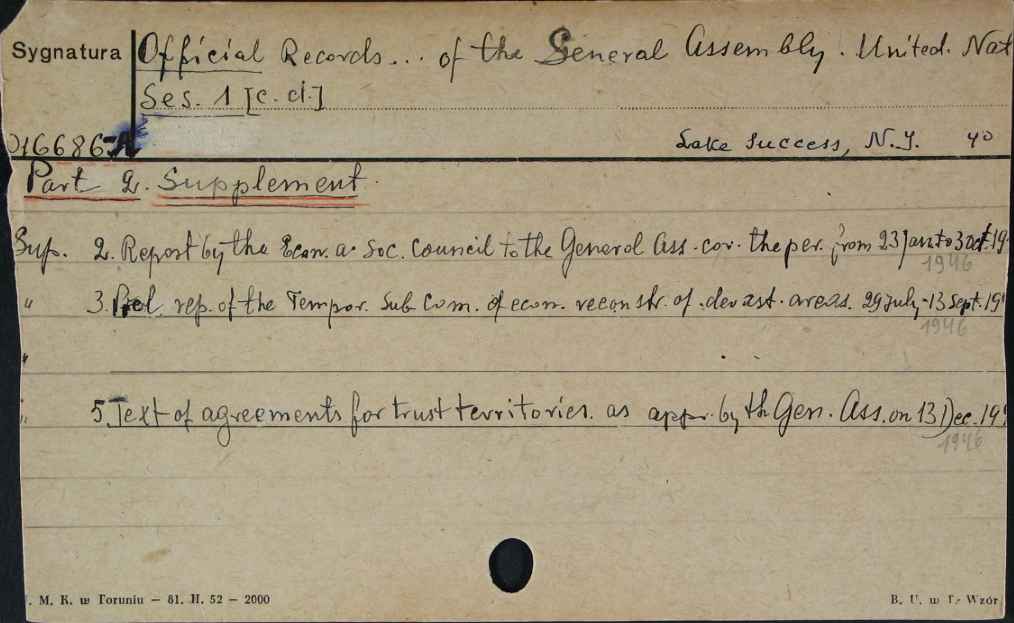 Sygnatura Official Records... of the General Assembly. United. Nat
Ses. 1 [c. d.]
016686-A Lake Success, N.Y. 40
Part 2. Supplement
Sup. 2. Report by the Econ. a. Soc. Council to the General Ass. cov. the per. from 23 Jan to 3 Oct. 19
1946
" 3. Prel. rep. of the Tempor. Sub Com. of econ. reconstr. of. devast. areas. 29 July - 13 Sept. 19
1946
"
" 5. Text of agreements for trust territories. as appr. by th Gen. Ass. on 13 Dec. 19
1946
. M. K. w Toruniu — 81. H. 52 — 2000
B. U. w T. Wzór